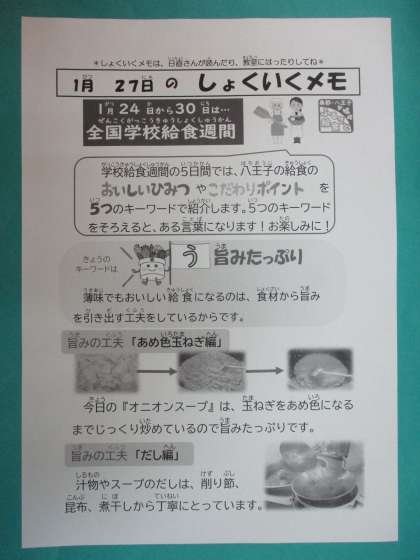 ＊しょくいくメモは、日直さんが読んだり、教室にはったりしてね＊
1月 27日の しょくいくメモ
1月24日から30日は…
ぜんこくがっこうきゅうしょくしゅうかん
全国学校給食週間
学校給食週間の5日間では、八王子の給食の
おいしいひみつ や こだわりポイント を
5つのキーワードで紹介します。5つのキーワード
をそろえると、ある言葉になります！お楽しみに！
きょうの
キーワードは
う 旨みたっぷり
薄味でもおいしい給食になるのは、食材から旨み
を引き出す工夫をしているからです。
旨みの工夫「あめ色玉ねぎ編」
今日の『オニオンスープ』は、玉ねぎをあめ色になる
までじっくり炒めているので旨みたっぷりです。
旨みの工夫「だし編」
汁物やスープのだしは、削り節、
昆布、煮干しから丁寧にとっています。